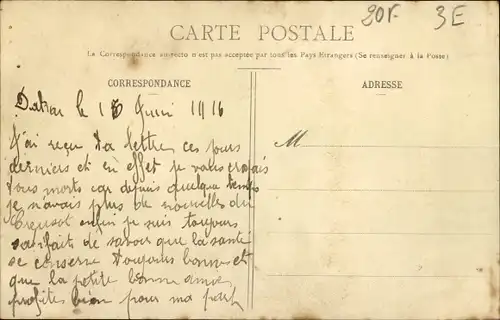 20F 3E
CARTE POSTALE
La Correspondance au recto n'est pas acceptée par tous les Pays Etrangers (Se renseigner à la Poste)
CORRESPONDANCE
ADRESSE
Dakar le 15 Juin 1916
M
J'ai reçu ta lettre, ces jours
derniers et en effet je vous croyais
tous morts car depuis quelque temps
je n'avais plus de nouvelles du
Creusot enfin je suis toujours
satisfait de savoir que la santé
se conserve toujours bonne et
que la petite bonne amie
profites bien pour ma part